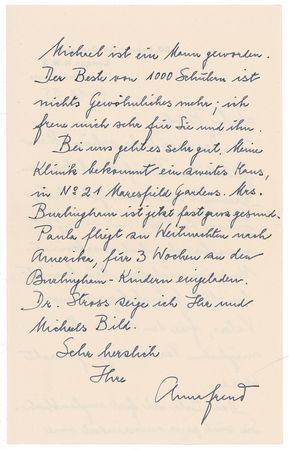 Michael ist ein Mann geworden.
Der Beste von 1000 Schülern ist
nichts Gewöhnliches mehr; ich
freue mich sehr für Sie und ihn.
Bei uns geht es sehr gut. Meine
Klinik bekommt ein zweites Haus,
in No 21 Maresfield Gardens. Mrs.
Burlingham ist jetzt fast ganz gesund.
Paula fliegt zu Weihnachten nach
Amerika, für 3 Wochen zu den
Burlingham-Kindern eingeladen.
Dr. Stross zeige ich Ihr und
Michaels Bild.
Sehr herzlich
Ihre
Anna Freud